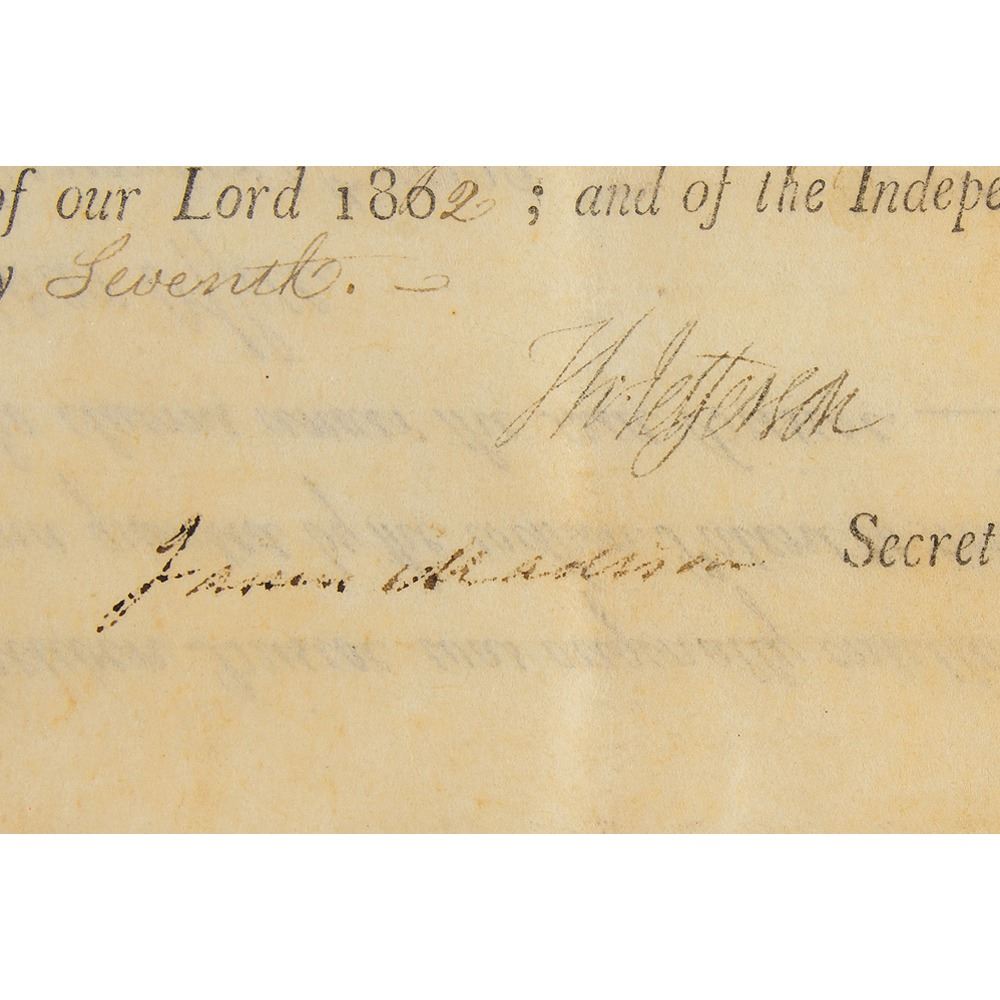 of our Lord 1802 ; and of the Indepe
y Seventh. –
Th: Jefferson
James Madison Secret